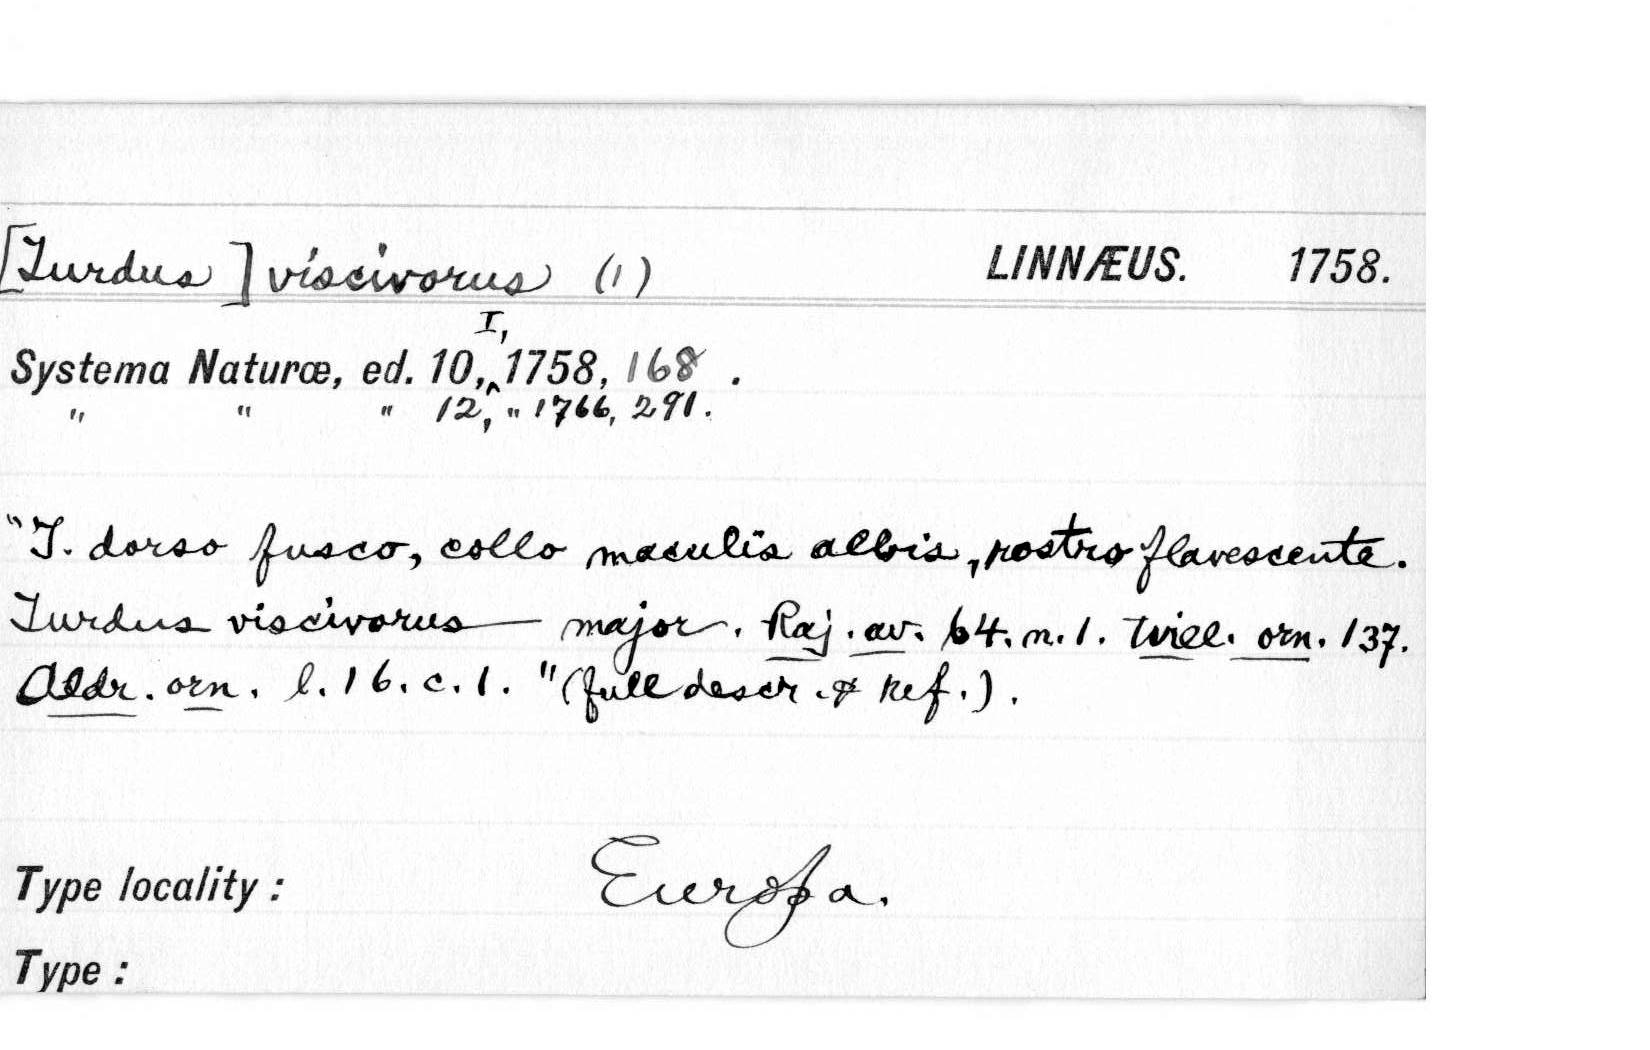 [Turdus] viscivorus (1) LINNÆUS. 1758.
Systema Naturæ, ed. 10, I, 1758, 168.
" " " 12, " 1766, 291.
"T. dorso fusco, collo maculis albis, rostro flavescente.
Turdus viscivorus — major. Raj. av. 64. n. 1. Will. orn. 137.
Aldr. orn. l. 16. c. 1. " (full descr. & ref.).
Type locality: Europa.
Type: